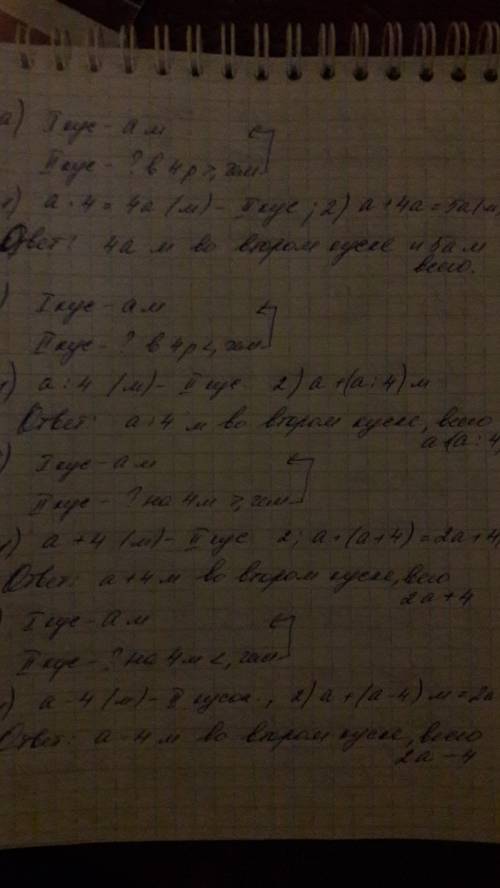 а) I кус - а м
II кус - ? в 4 р >, чем
1) а · 4 = 4а (м) - II кус ; 2) а + 4а = 5а (м
Ответ: 4а м во втором куске и 5а м
всего.
) I кус - а м
II кус - ? в 4 р <, чем
1) а : 4 (м) - II кус 2) а + (а : 4) м
Ответ: а : 4 м во втором куске, всего
а + (а : 4)
) I кус - а м
II кус - ? на 4 м >, чем
1) а + 4 (м) - II кус 2; а + (а + 4) = 2а + 4
Ответ: а + 4 м во втором куске, всего
2а + 4
) I кус - а м
II кус - ? на 4 м <, чем
1) а - 4 (м) - II кусок , 2) а + (а - 4) м = 2а
Ответ: а - 4 м во втором куске, всего
2а - 4